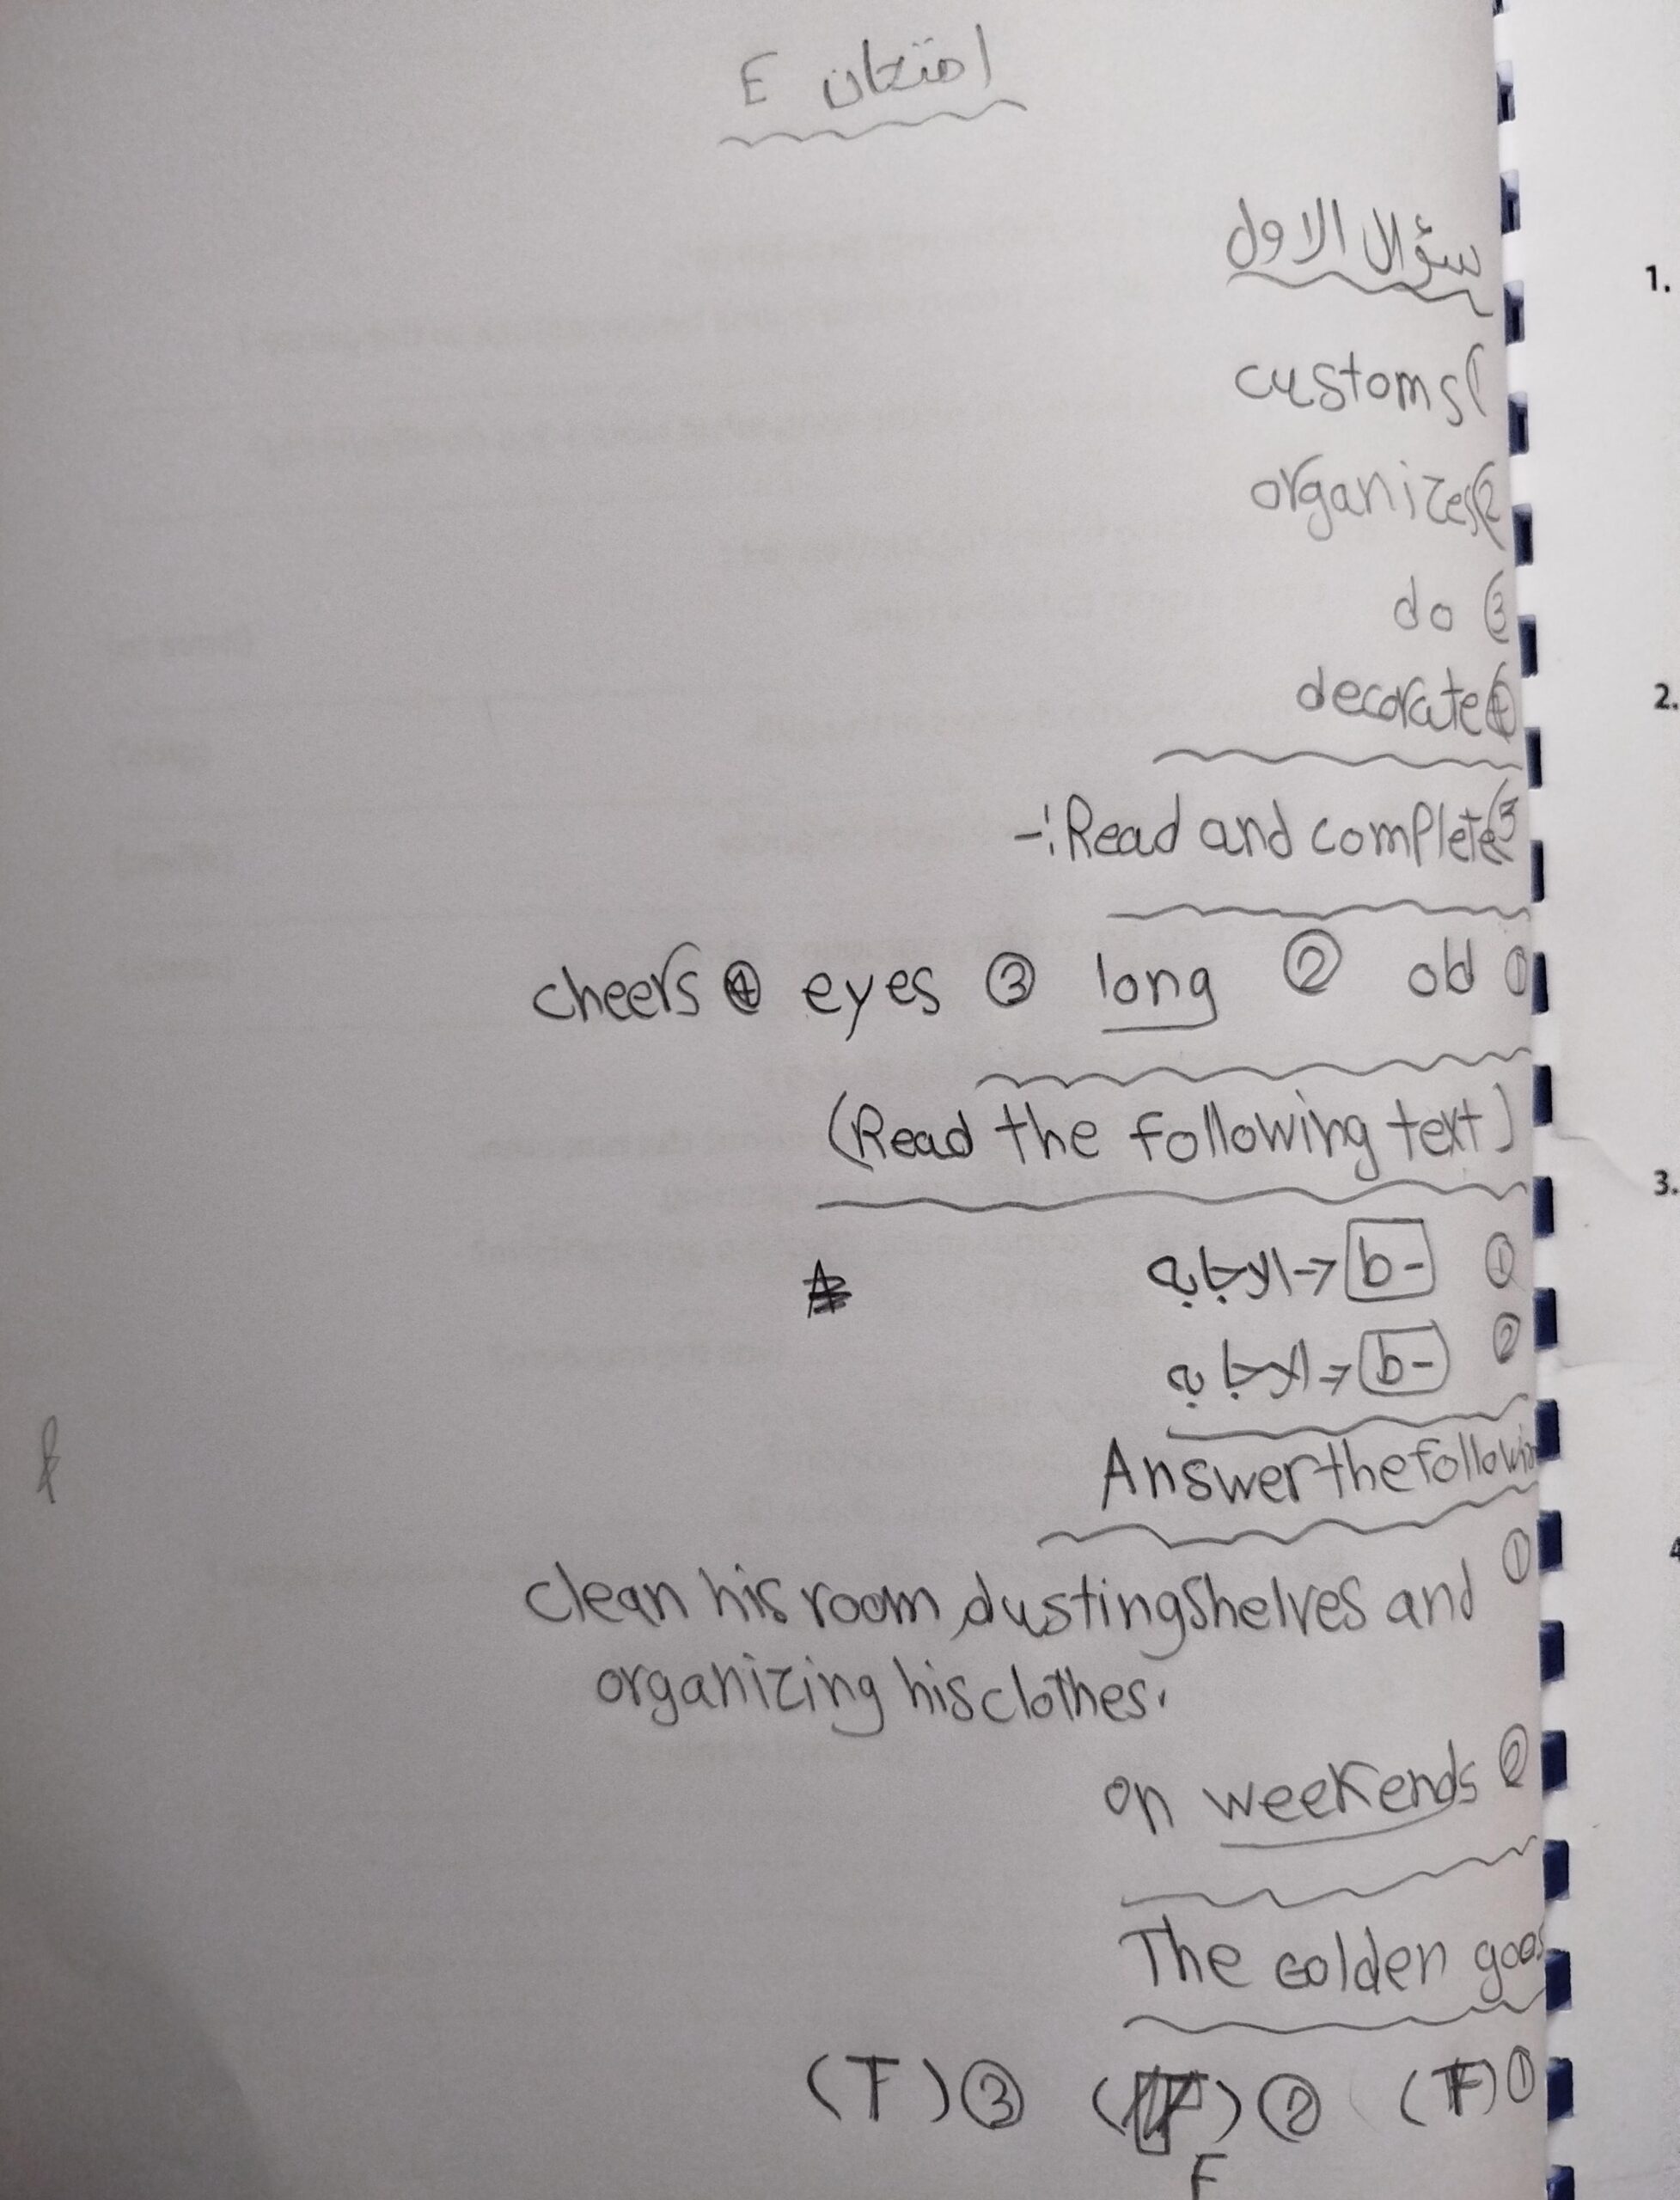 امتحان E
سؤال الاول
customs (1
organizes (2
do (3
decorate (4
Read and complete (3 :-
① old ② long ③ eyes ④ cheers
(Read the following text)
① b- → الاجابه
② b- → الاجابه
Answer the followin
① clean his room, dusting shelves and
organizing his clothes.
② on weekends
The golden goos
① ( ) ② ( ) ③ (T)
F
1.
2.
3.
4